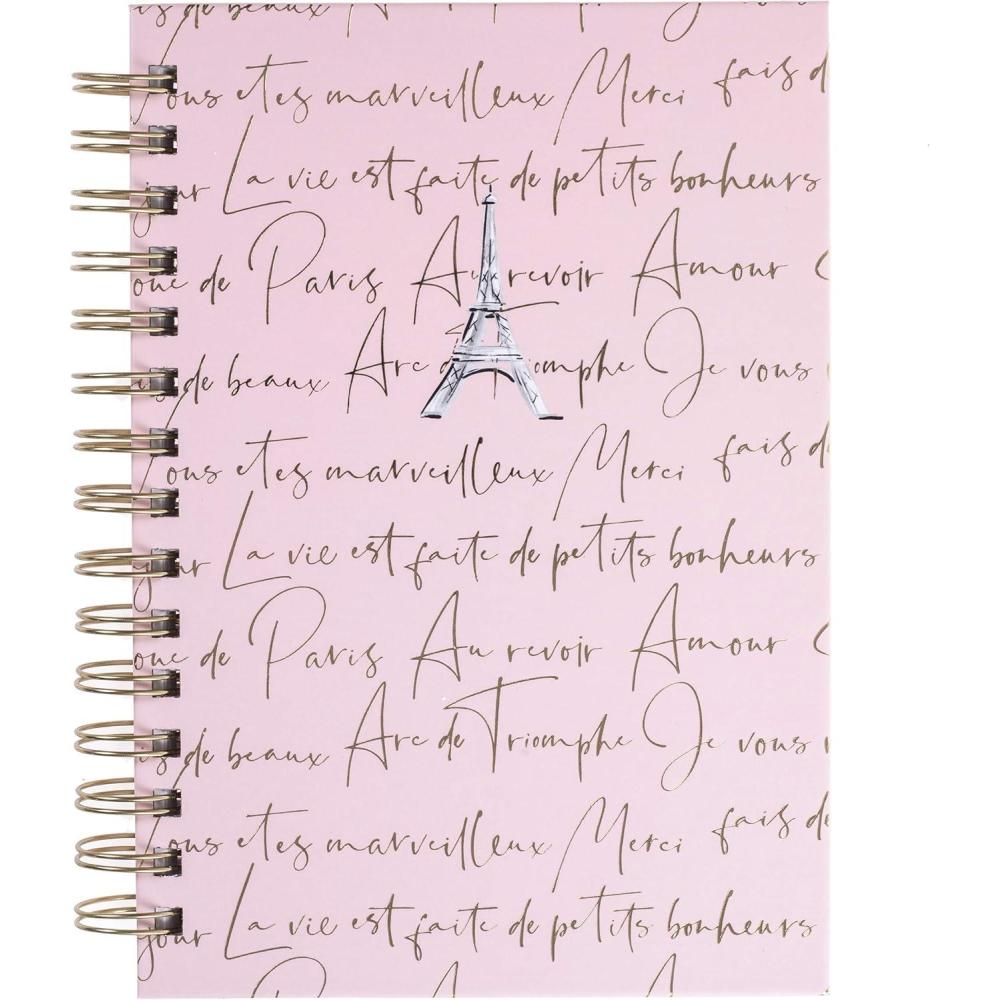 is de beaux
Vous etes marveilleux Merci fais d
jour La vie est faite de petits bonheurs
oue de Paris Au revoir Amour
is de beaux Arc de Triomphe Je vous
Vous etes marveilleux Merci fais de
jour La vie est faite de petits bonheurs
oue de Paris Au revoir Amour
is de beaux Arc de Triomphe Je vous
Vous etes marveilleux Merci fais de
jour La vie est faite de petits bonheurs